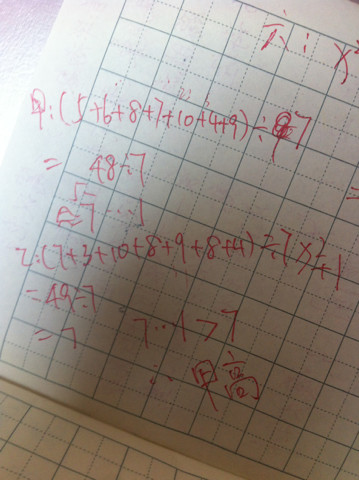 六: x²
甲:(5+6+8+7+10+4+9)÷7
= 48÷7
≈7…1
乙:(7+3+10+8+9+8+4)÷7 x²+1
=49÷7
=7 7…1>7
∴甲高